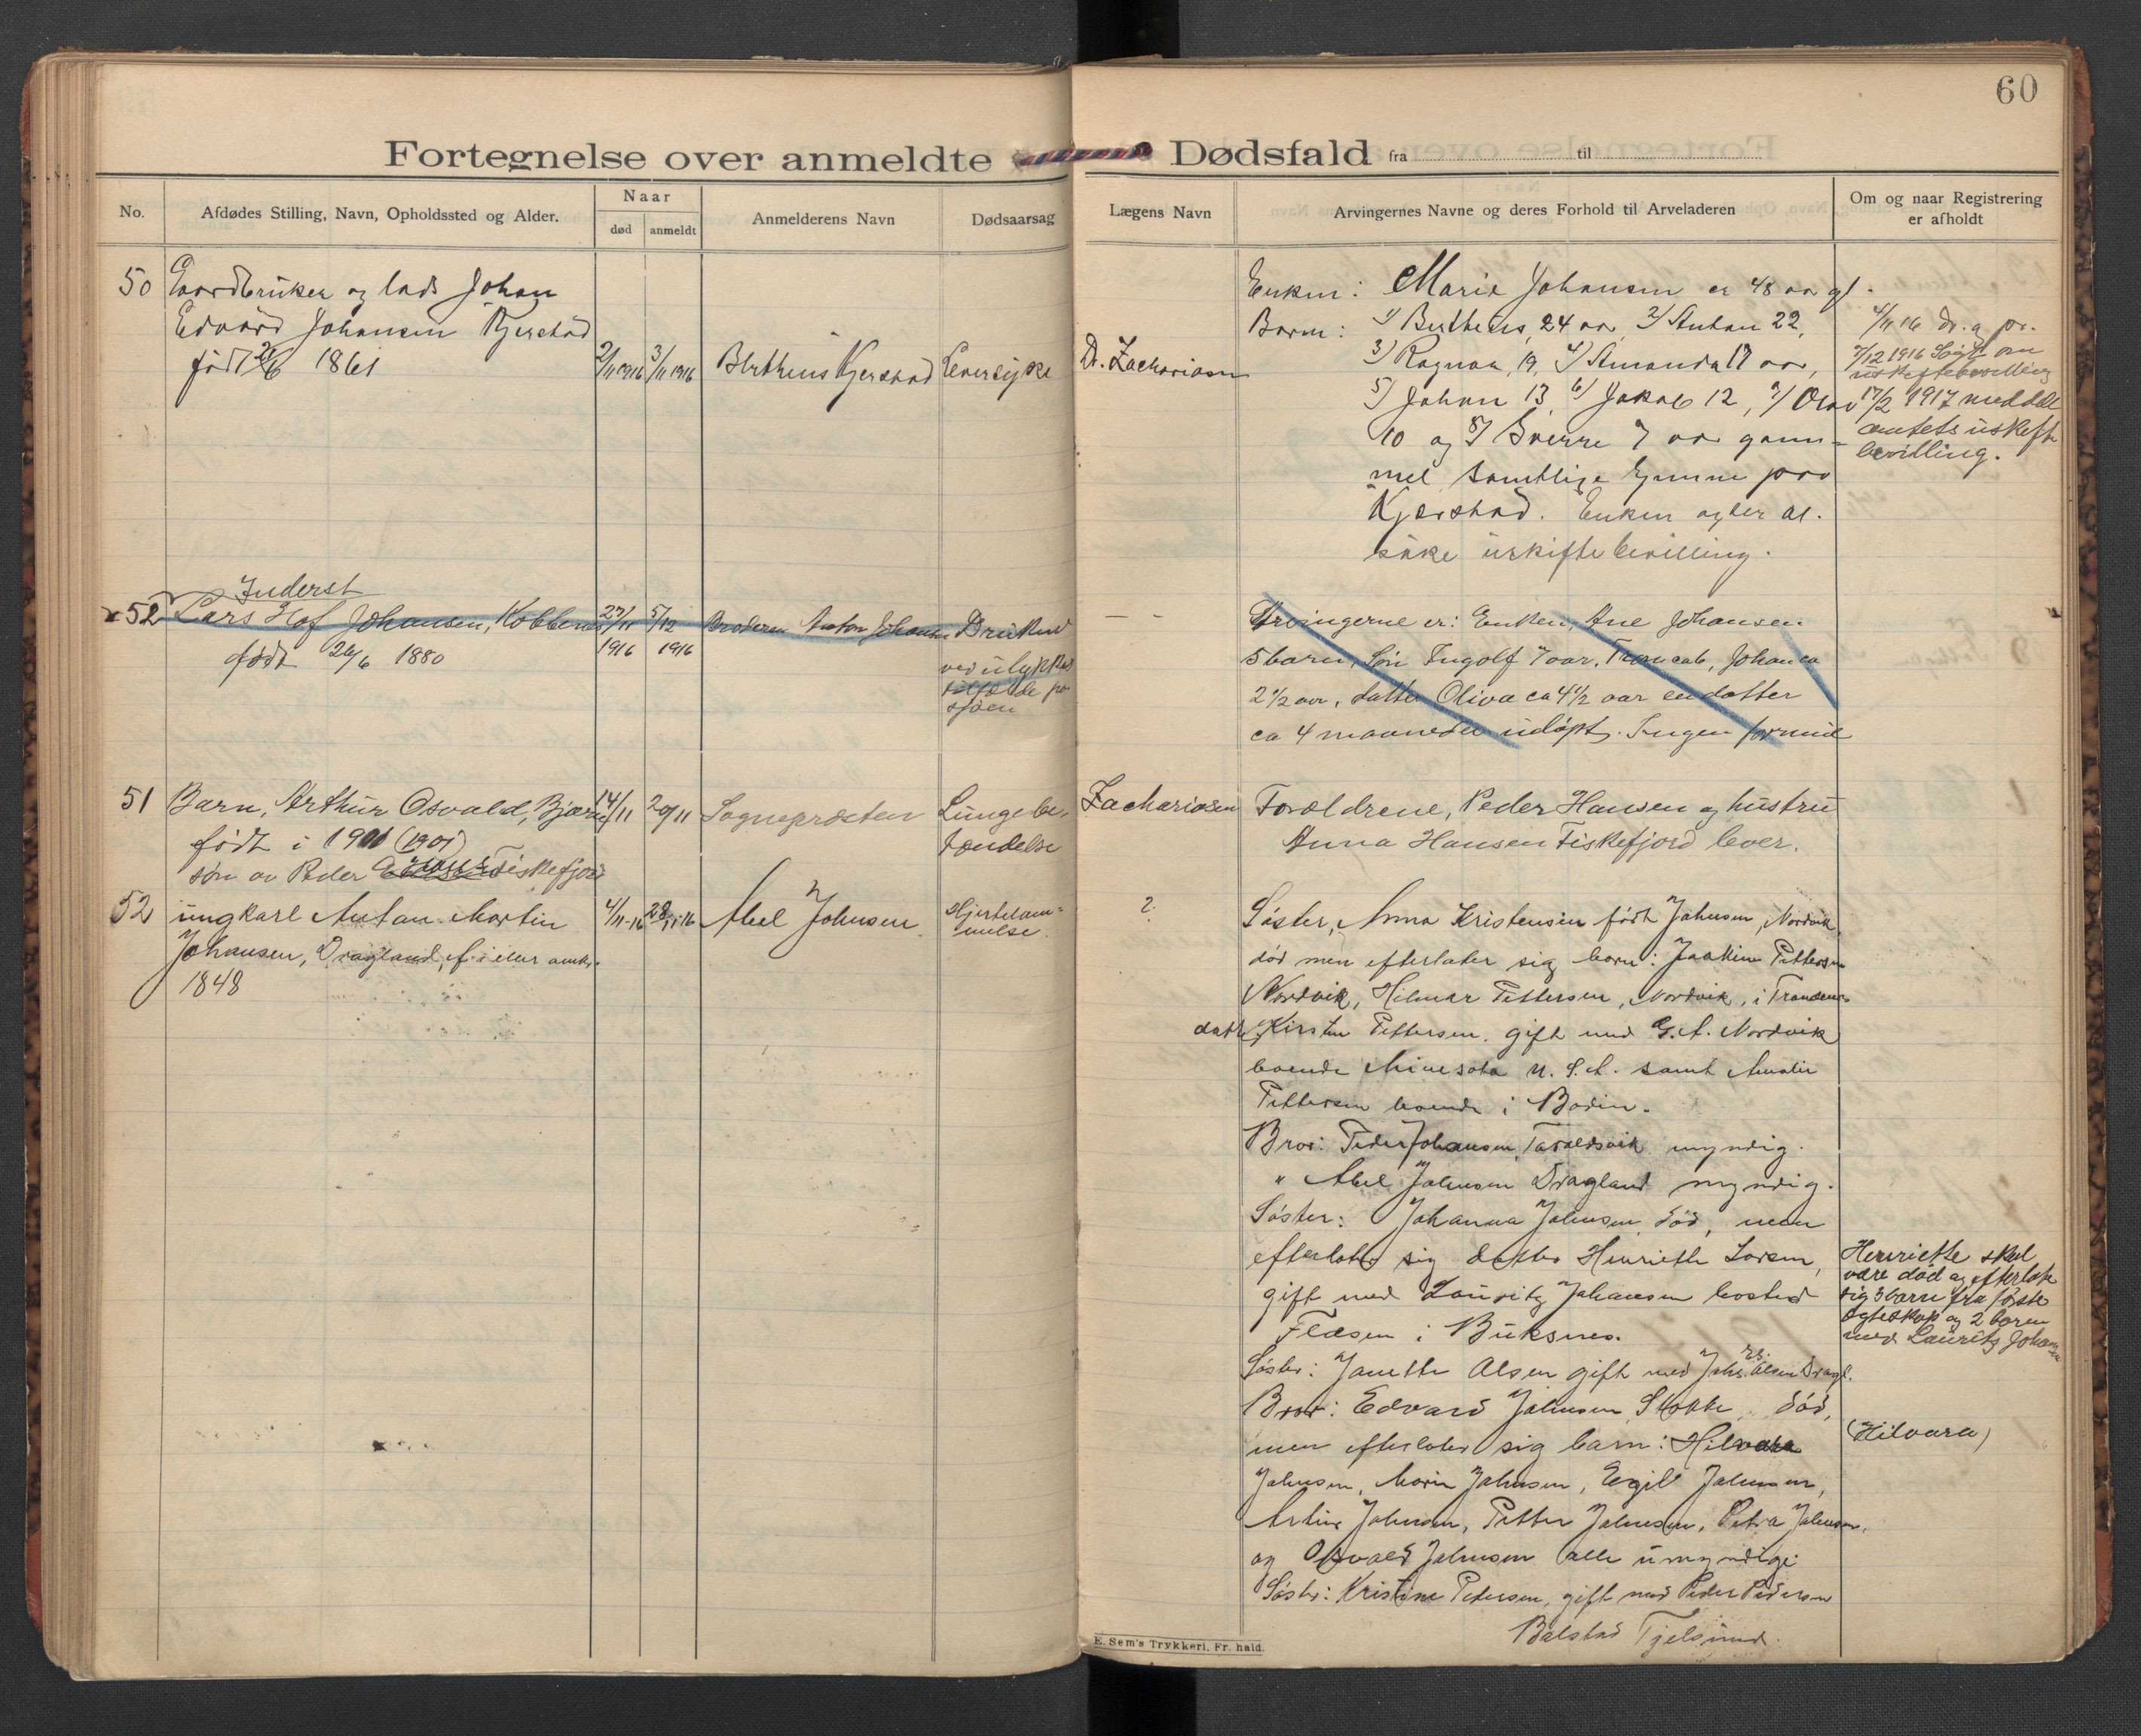 60
Fortegnelse over anmeldte Dødsfald fra til
No.
Afdødes Stilling, Navn, Opholdssted og Alder.
Naar
død
anmeldt
Anmelderens Navn
Dødsaarsag
Lægens Navn
Arvingernes Navne og deres Forhold til Arveladeren
Om og naar Registrering
er afholdt
50 Gaardbruker og lods Johan
Edvard Johansen Kjerstad
født 2/6 1861
2/11 1916
3/11 1916
Bertheus Kjerstad
Leversyke
Dr. Zachariasen
Enken: Marie Johansen er 48 aar gl.
Barn: 1) Bertheus, 24 aar 2) Anton 22,
3) Ragnar, 19, 4) Amanda 17 aar,
5) Johan 13, 6) Jakob 12, 7) Olav
10 og 8) Sverre 7 aar gam-
mel samtlige hjemme paa
Kjerstad. Enken agter at
søke uskiftebevilling.
4/11 16 dr. a pr.
7/12 1916 Søgt om
uskiftebevilling
17/2 1917 meddelt
amtets uskifte
bevilling.
Inderst
52 Lars Hof Johansen, Kobbenes
født 26/6 1880
27/11
1916
5/12
1916
Broderen Anton Johansen
Druknet
ved ulykkes
tilfælde paa
sjøen
- -
Arvingerne er: Enken, Ane Johansen.
5 barn, Søn Ingolf 7 aar, ca 6, Johan ca
2 1/2 aar, datter Oliva ca 4 1/2 aar en datter
ca 4 maaneder udøpt. Ingen formue
51 Barn, Arthur Osvald, Bjørn
født i 1901 (1901)
søn av Peder Fiskefjord
14/11
20/11
Sognepræsten
Lungebe-
tændelse
Zachariasen
Foræeldrene, Peder Hansen og hustru
Anna Hansen Fiskefjord lever.
52 ungkarl Anton Martin
Johansen, Dragland, f. i eller omkr.
1848
4/11-16
28/11-16
Abel Johnsen
Hjertelam-
melse.
?
Søster, Anna Kristensen født Johnsen, Nordvik
død men efterlater sig barn: Joakim Pettersen
Nordvik, Hilmar Pettersen, Nordvik, i Trondenes
datter Kirsten Pettersen, gift med G. A. Nordvik
boende Minesota U. S. A. samt Amalie
Pettersen boende i Bodin.
Bror: Peder Johansen, Taraldsvik myndig.
" Abel Johnsen Dragland myndig.
Søster: Johanna Johnsen død, men
efterlater sig datter Henriette Larsen,
gift med Lauritz Johansen bosted
Flæsen i Buksnes.
Henriette skal
være død og efterlate
sig 3 barn fra første
egteskap og 2 barn
med Laurits Johansen
Søster: Janette Olsen gift med Johs. Olsen Dragl.
Bror: Edvard Johnsen, Stokke, død,
men efterlater sig barn: Hilvara
(Hilvara)
Johnsen, Marie Johnsen, Egil Johnsen,
Artur Johnsen, Petter Johnsen, Petra Johnsen,
og Osvald Johnsen alle umyndige.
Søster: Kristine Petersen, gift med Peder Pedersen
Balstad Tjelsund.
E. Sem's Trykkeri, Fr. hald.